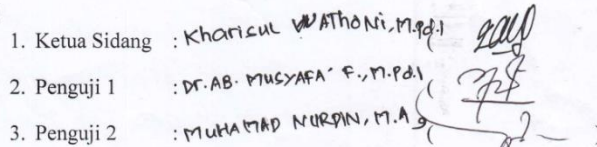 1. Ketua Sidang : Kharisul WAthoni, M.Pd.I (
2. Penguji 1 : Dr. AB. MUSYAFA' F., M.Pd.I (
3. Penguji 2 : MUHAMAD NURDIN, M.Ag (